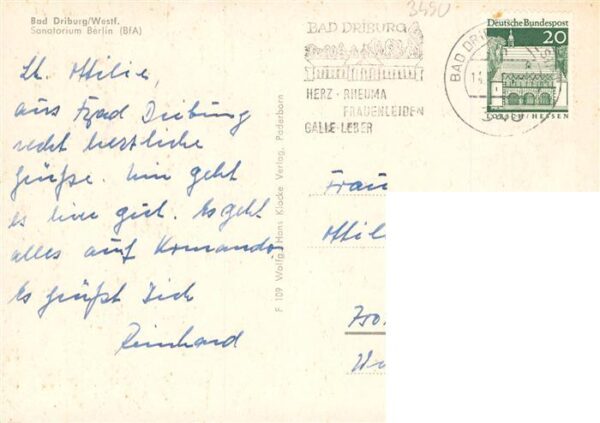 Bad Driburg/Westf.
Sanatorium Berlin (BfA)
3450
BAD DRIBURG
HERZ · RHEUMA
FRAUENLEIDEN
GALLE-LEBER
BAD DRI
Deutsche Bundespost
20
LORSCH/HESSEN
Lb. Ottilie,
aus Bad Driburg
recht herzliche
Grüße. Mir geht
es hier gut. Es geht
alles auf Kommando.
Es grüßt Dich
Reinhard
F 109 Wolfg. Hans Klocke Verlag, Paderborn
Frau
Ottil